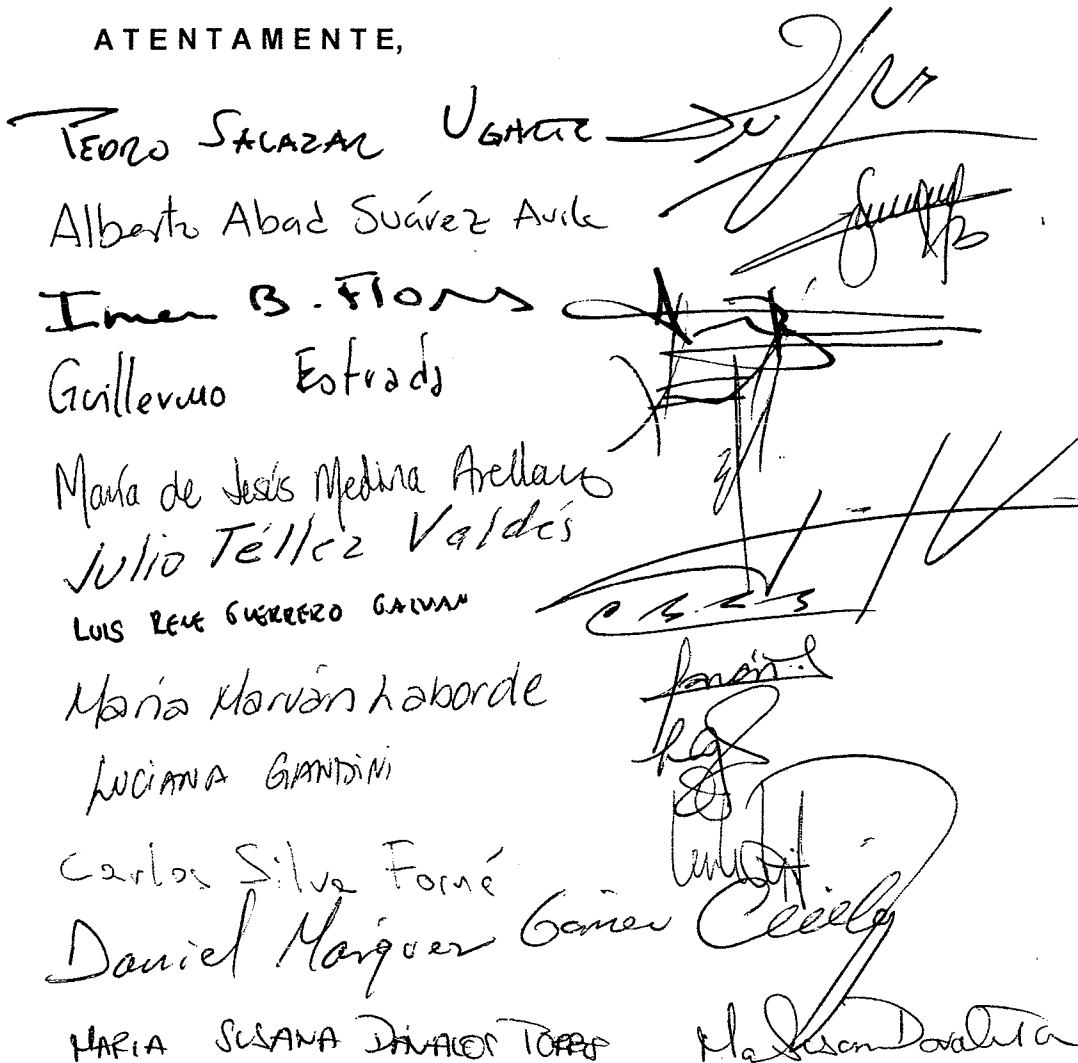 ATENTAMENTE,
PEDRO SALAZAR UGARTE
Alberto Abad Suárez Avila
Imer B. Flores
Guillermo Estrada
María de Jesús Medina Arellano
Julio Téllez Valdés
LUIS RENE GUERRERO GALVAN
María Marván Laborde
LUCIANA GANDINI
Carlos Silva Forné
Daniel Márquez Gómez
MARIA SUSANA DÁVALOS TORRES